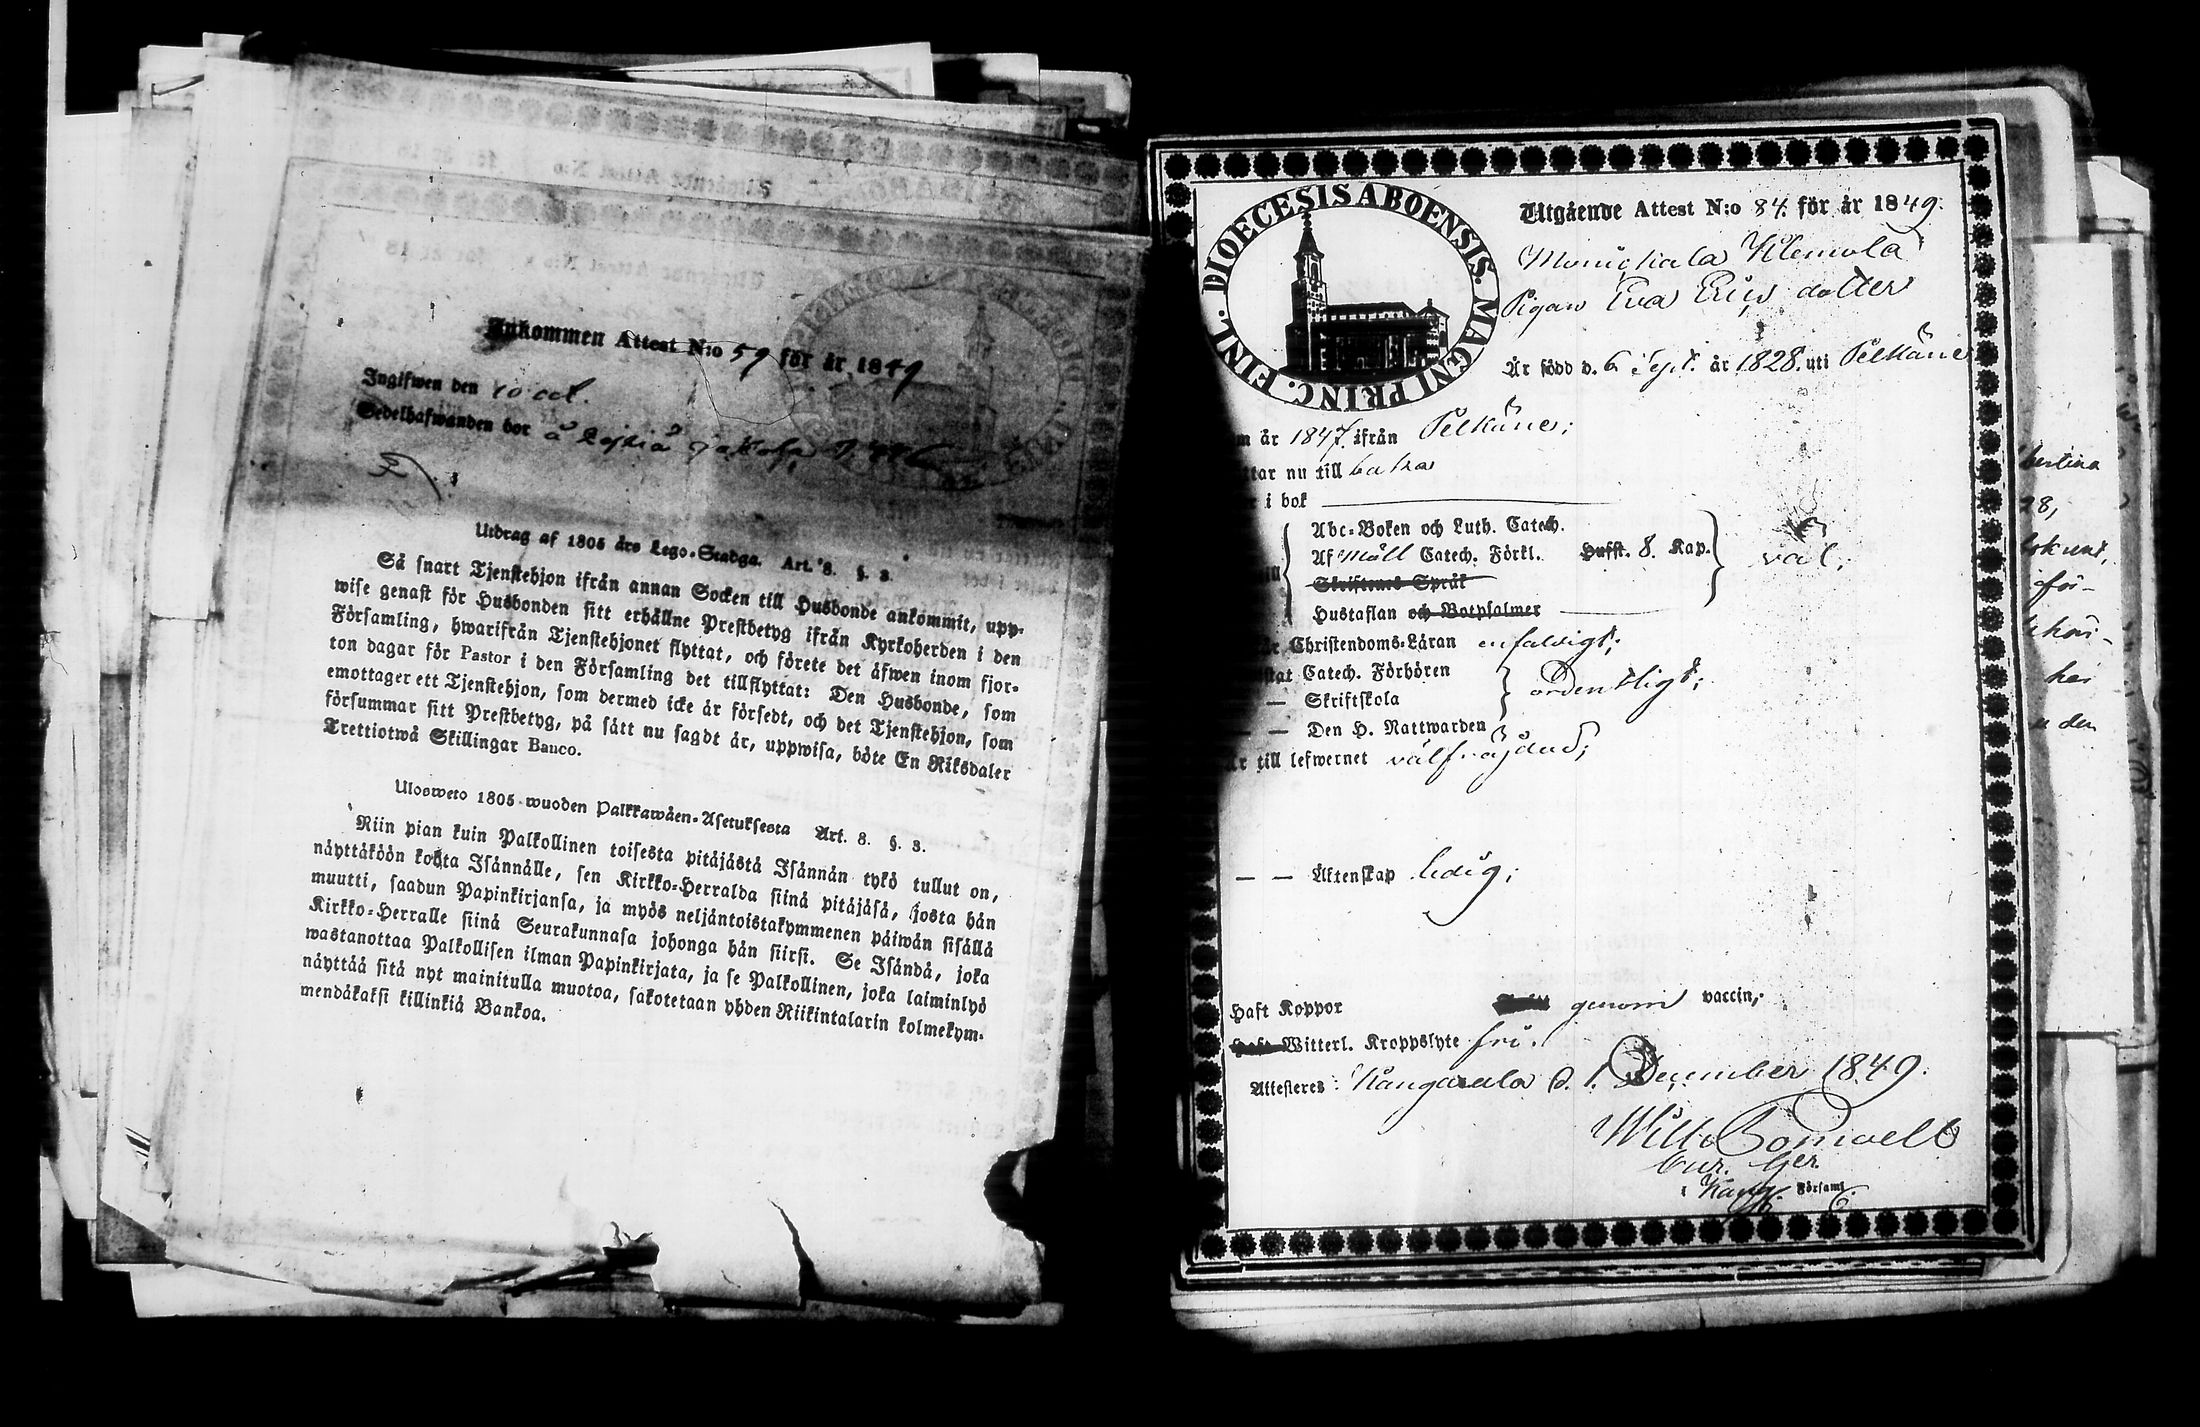 Inkommen Attest N:o 59 för år 1849
Ingifwen den 10 oct.
Sedelhafwanden bor å
Utdrag af 1805 års Lego-Stadga. Art. 8. §. 3.
Så snart Tjenstehjon ifrån annan Socken till Husbonde ankommit, upp-
wise genast för Husbonden sitt erhållne Prestbetyg ifrån Kyrkoherden i den
Församling, hwarifrån Tjenstehjonet flyttat, och förete det äfwen inom fjor-
ton dagar för Pastor i den Församling det tillflyttat: Den Husbonde, som
emottager ett Tjenstehjon, som dermed icke är försedt, och det Tjenstehjon, som
försummar sitt Prestbetyg, på sätt nu sagdt är, uppwisa, böte En Riksdaler
Trettiotwå Skillingar Banco.
Ulosweto 1805 wuoden Palkkawäen-Asetuksesta Art. 8. §. 3.
Niin pian kuin Palkollinen toisesta pitäjästä Isännän tykö tullut on,
näyttäköön kohta Isännälle, sen Kirkko-Herralda siinä pitäjäsä, josta hän
muutti, saadun Papinkirjansa, ja myös neljäntoistakymmenen päiwän sisällä
Kirkko-Herralle siinä Seurakunnasa johonga hän siirsi. Se Isändä, joka
wastanottaa Palkollisen ilman Papinkirjata, ja se Palkollinen, joka laiminlyö
näyttää sitä nyt mainitulla muotoa, sakotetaan yhden Riikintalarin kolmekym-
mendäkaksi killinkiä Bankoa.
DIOECESIS ABOENSIS. MAGNI PRINC. FINL.
Utgående Attest N:o 84. för år 1849.
Pigan Eva Erics dotter
Är född d. 6 Sept. år 1828. uti Pelkäne
m år 1847. ifrån Pelkäne;
tar nu till
i bok
Abc-Boken och Luth. Catech.
Af Möll Catech. Förkl. Husst. 8. Kap. väl;
Skriftenes Språk
Hustaflan och Botpsalmer
Christendoms-Läran enfaldigt;
stat Catech. Förhören
— Skriftskola ordentligt;
— — Den H. Nattwarden
r till lefwernet välfräjdad;
— — Äktenskap ledig;
Haft Koppor genom vaccin,
Haft Witterl. Kroppslyte fri.
Attesteres: Kangasala d. 1. December 1849.
i Kang. Församl.